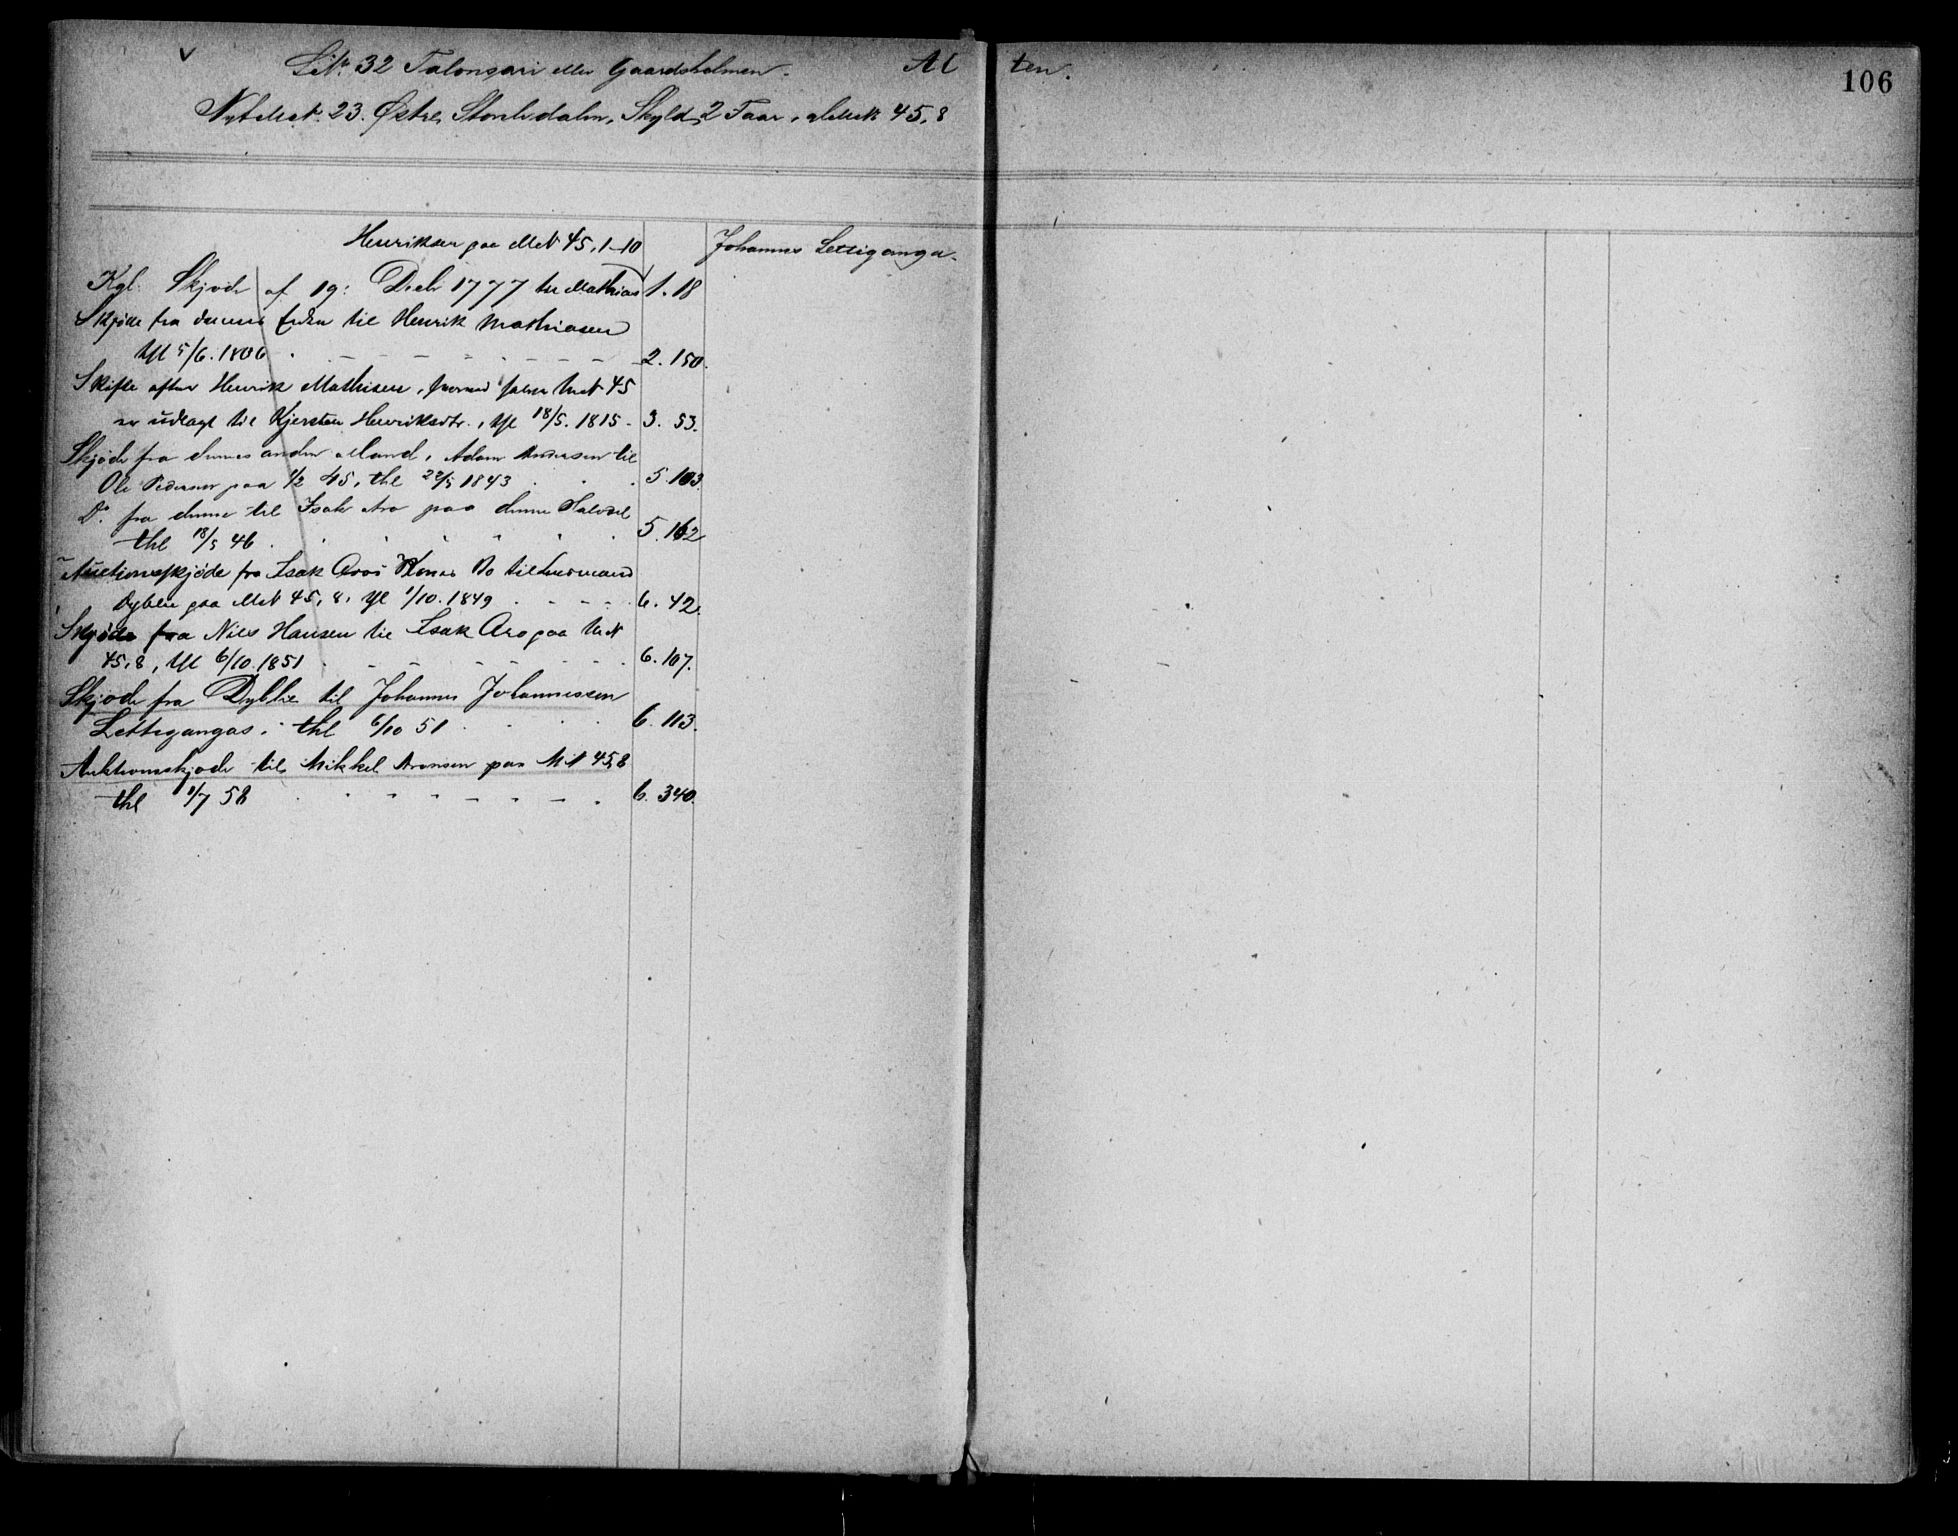 Litr. 32 Talonsari eller Gaardsholmen. Al ten.
106
Nyt Mat. 23. Østre Storslidalen, Skyld 2 Faar, gl Mat 45,8
Henriksen paa Mat 45, 1-10
Johannes Lettiganga.
Kgl. Skjøde af 19: Decbr 1777 til Mathias 1. 18
Skjøde fra dennes Enke til Henrik Mathiasen
thl 5/6. 1806 2. 150.
Skifte efter Henrik Mathisen, hvorved halve Mat 45
er udlagt til Kjersten Henriksdtr., thl 18/5. 1815. 3. 53.
Skjøde fra dennes anden Mand, Adam Andersen til
Ole Pedersen paa 1/2 45, thl 22/5 1843 5. 103.
Do. fra denne til Isak Aro paa denne Halvdel
thl 18/5 46 5. 162
Auctionsskjøde fra Isak Aros Kones Bo til Lensmand
Dyblie paa Mat 45, 8. thl 1/10. 1849 6. 42.
Skjøde fra Nils Hansen til Isak Aro paa Mat
45, 8, thl 6/10. 1851 6. 107.
Skjøde fra Dyblie til Johannes Johannessen
Lettigangas. thl 6/10 51 6. 113.
Auktionsskjøde til Mikkel Aronsen paa Mat 45,8
thl 1/7 58 6. 340.